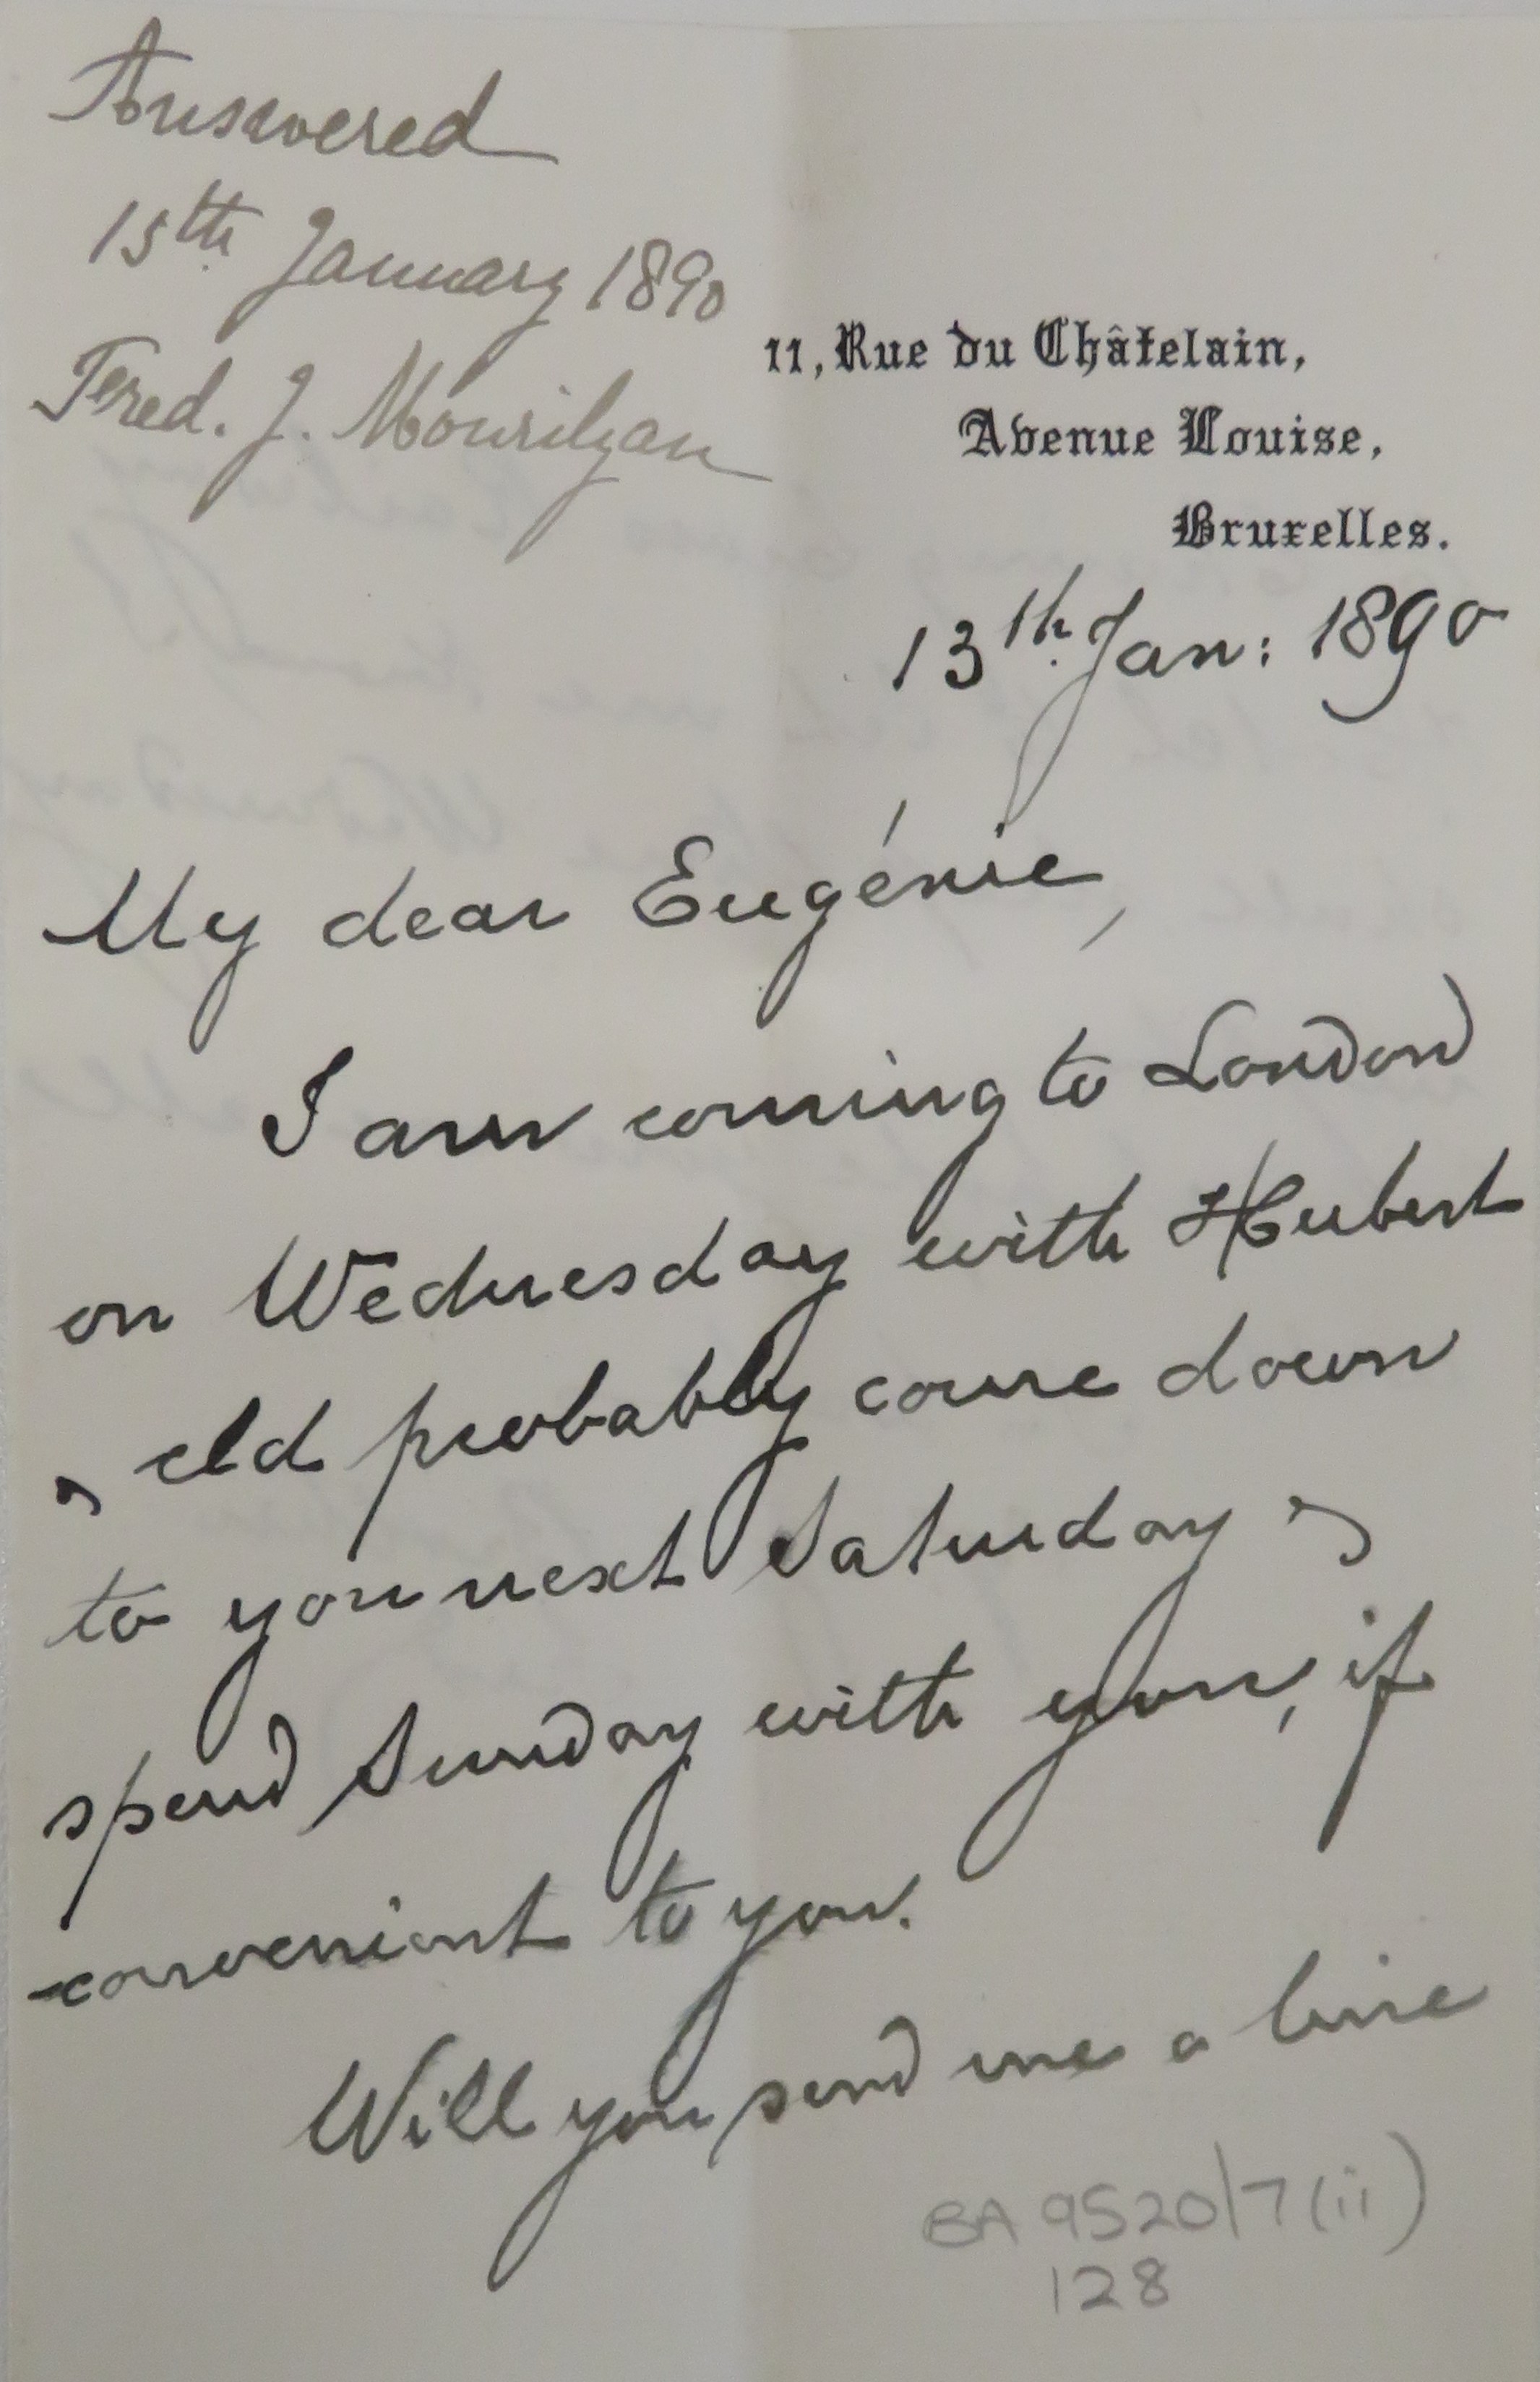 Answered
15th January 1890
Fred. J. Mourilyan
11, Rue du Châtelain,
Avenue Louise,
Bruxelles.
13th. Jan: 1890
My dear Eugénie,
I am coming to London
on Wednesday with Hubert
& cld probably come down
to you next Saturday &
spend Sunday with you, if
convenient to you.
Will you send me a line
BA 9520/7(ii)
128